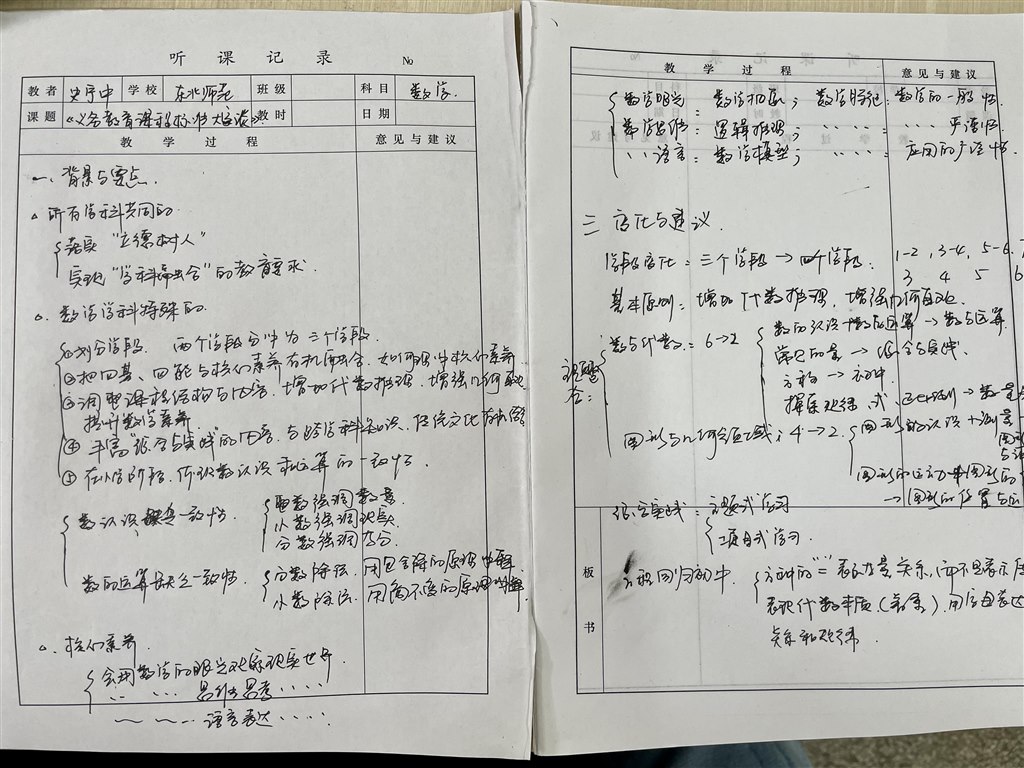 听课记录 No
教者 史宁中 学校 东北师范 班级 科目 数学
课题 《义务教育课程标准》 教时 日期
教学过程 意见与建议
一、背景与要点.
△ 所有学科共同的
落实“立德树人”
实现“学科融合”的教育要求.
△ 数学学科特殊的
①划分学段. 两个学段分为三个学段
②把四基、四能与核心素养有机融合. 如何体现核心素养
③调整课程结构与内容. 增加代数推理, 增强几何直观
提升数学素养.
④ 丰富“综合与实践”的内容. 与跨学科知识、传统文化
⑤ 在小学阶段. 体现数认识和运算的一致性.
数认识缺乏一致性. 整数强调数量
小数强调现实
分数强调等分
数的运算缺乏一致性 分数除法: 用包含除的原理
小数除法: 用商不变的原理
△. 核心素养
会用数学的眼光观察现实世界.
〃 〃 思维思考 ....
〃 〃 语言表达 ....
教学过程 意见与建议
数学眼光: 数学抽象; 数学特征: 数学的一般性.
数学思维: 逻辑推理; 〃 〃: 严谨性.
〃〃语言: 数学模型; 〃 〃: 应用的广泛性.
三 变化与建议.
学段变化: 三个学段 → 四个学段: 1-2, 3-4, 5-6,
3 4 5 6
基本原则: 增加代数推理, 增强几何直观.
主题整合:
数与代数: 6→2 数的认识+数的运算 → 数与运算
常见的量 → 综合与实践.
方程 → 初中.
探索规律, 式 正比例 → 数量
图形与几何领域: 4→2. 图形的认识+测量
图形的运动+图形的
→ 图形的位置与运
综合实践: 主题式学习
项目式学习.
板书
方程回归初中 方程的“=”表达量关系, 而不是表示
表现代数本质(等量). 用字母表达
关系和规律.